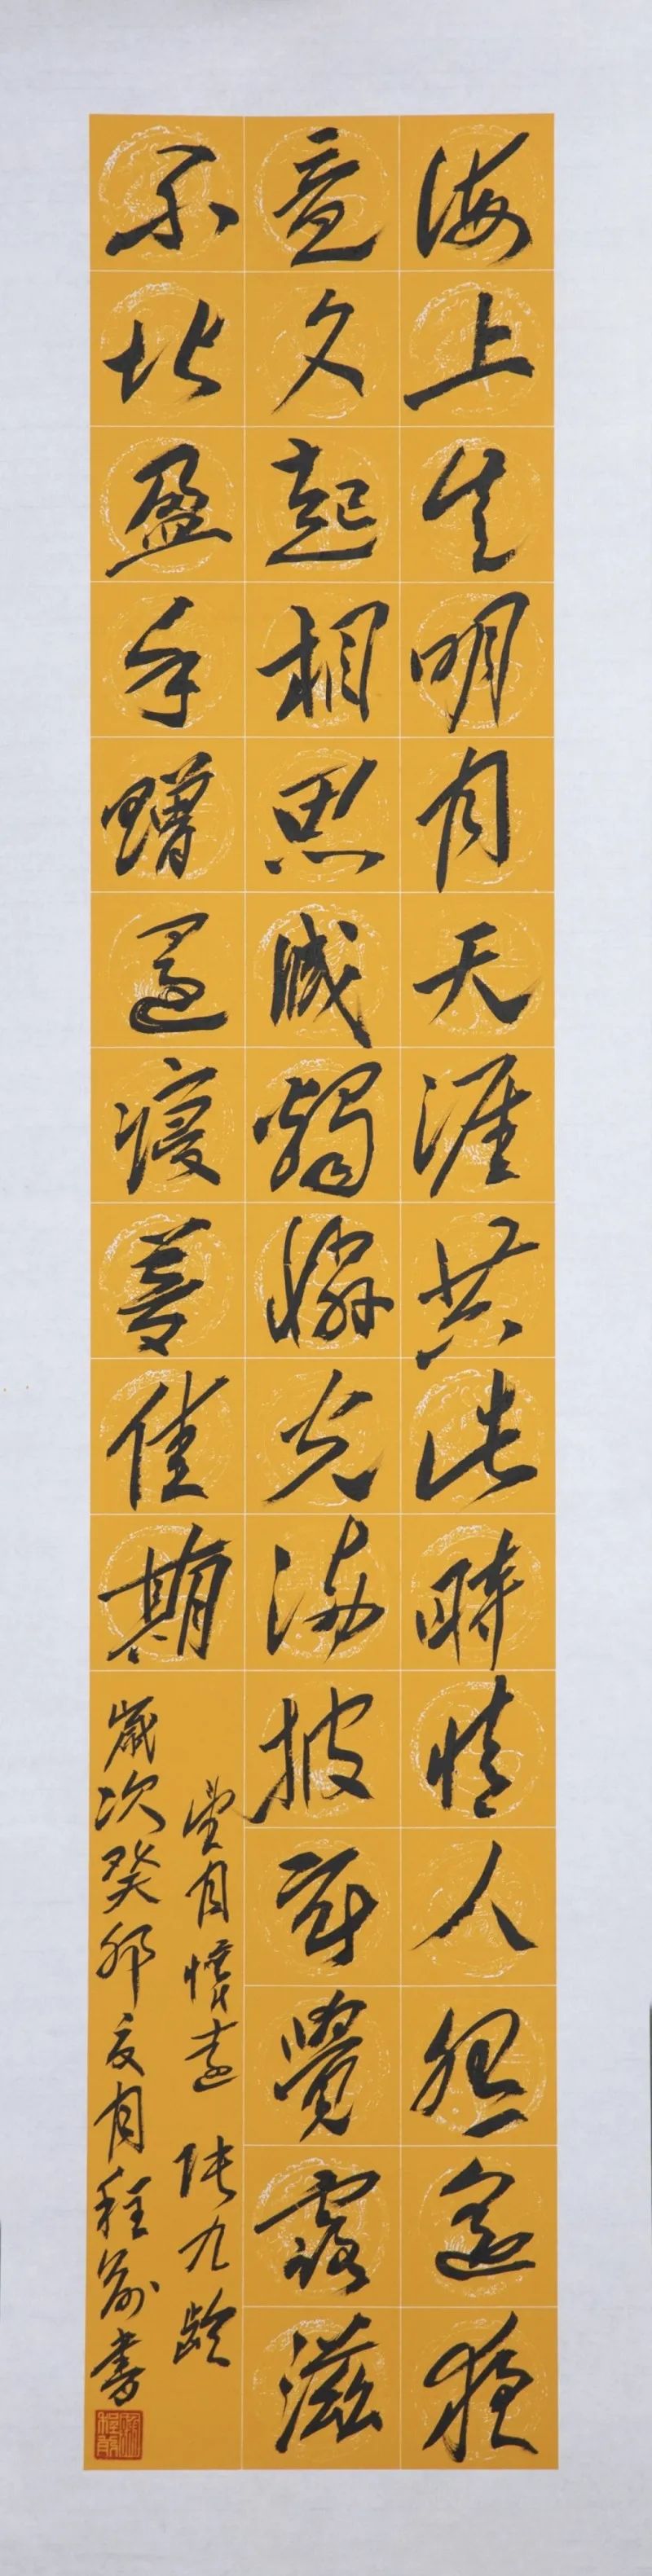 海上生明月天涯共此時情人怨遙夜
竟夕起相思滅燭憐光滿披衣覺露滋
不堪盈手贈還寢夢佳期
望月懷遠 張九齡
歲次癸卯夏月程書